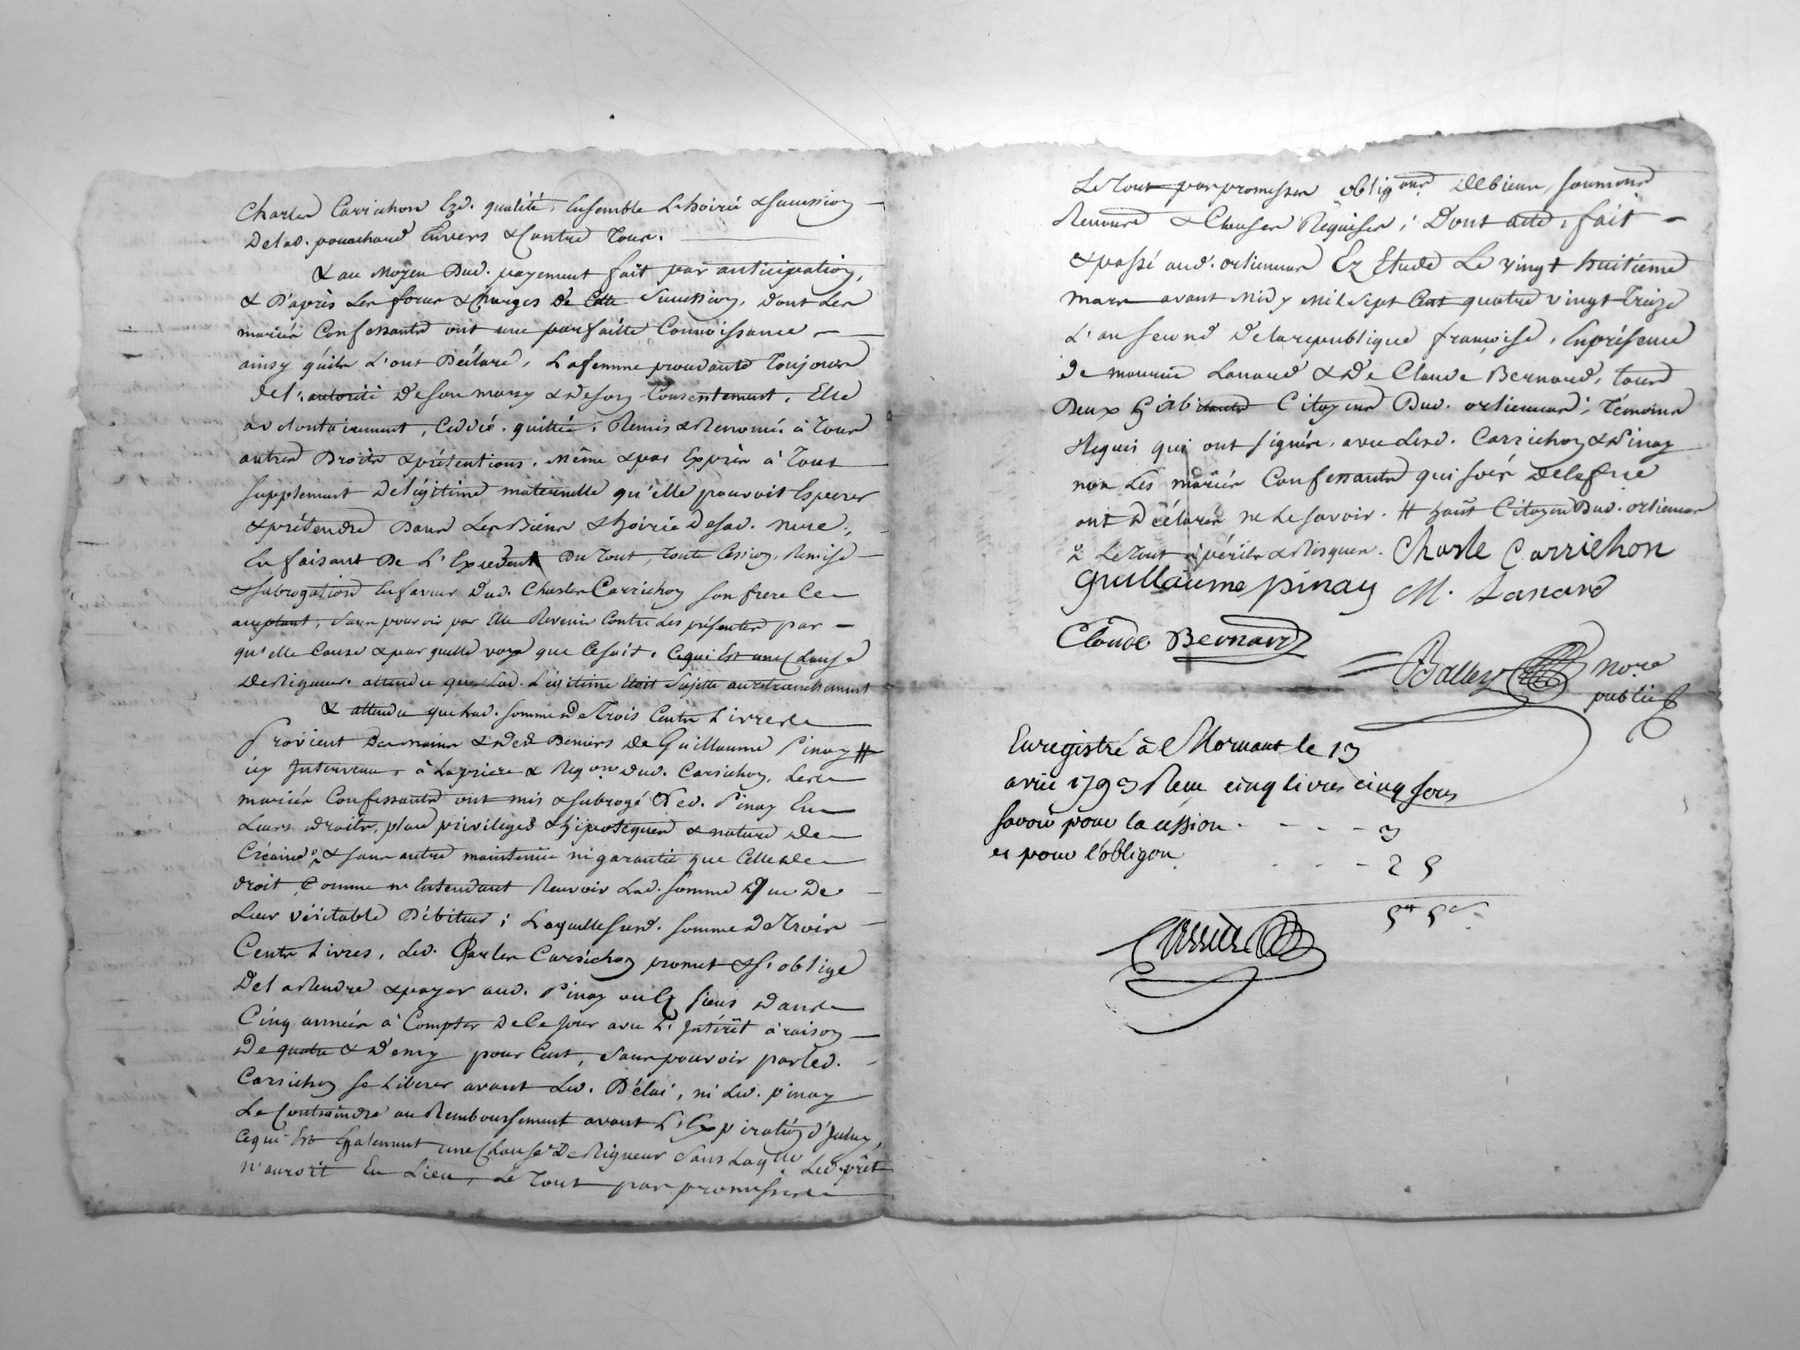 Charles Carrichon Ezd. qualité, Ensemble L'hoirie & Succession
De lad. pouachard Envers & Contre Tous.
& au Moyen Dud. payement fait par anticipation,
& D'après Les forces & Charges de Cette Succession, Dont Les
mariés Confessants ont une parfaitte Connoissance
ainsy qu'ils L'ont Déclaré, La femme procedante Toujours
de L'autorité De son mary & De son Consentement, Elle
a volontairement, Ceddé, quitté, Remis & Renoncé à Tous
autres Droits & prétentions, même & par Exprès à Tout
supplement De légitime maternelle qu'elle pouvoit Esperer
& prétendre Dans Les Biens & hoirie De sad. mere,
En faisant De L'Excedent Du Tout, Toute Cession, Remise
& subrogation En faveur Dud. Charles Carrichon son frere Ce
acceptant, Sans pouvoir par Elle Revenir Contre Les présentes par
qu'elle Cause & par quelle voye que Ce soit, Ce qui Est une Clause
De Rigueur. attendu que Lad. Légitime Etoit Sujette au retranchement
& attendu que lad. somme De Trois Cents Livres
Provient Des mains & Des Deniers De Guillaume Pinay #
icy Intervenu, à La priere & Reqon. Dud. Carrichon, Les
mariés Confessants ont mis & subrogé Led. Pinay En
Leurs droits, place privileges & hipoteques & nature De
Créance & sans autre maintenüe ni garantie que Celle De
droit, Comme ne Entendant Recevoir Lad. Somme Que De
Leur véritable Débiteur; Laquelle susd. somme De Trois
Cents Livres, Led. Charles Carrichon promet & s'oblige
De La Rendre & payer aud. Pinay ou Ez siens Dans
Cinq années à Compter De Ce jour avec L'Intérêt à raison
De quatre & Demy pour Cent, Sans pouvoir par Led.
Carrichon se Liberer avant Led. Délai, ni Led. pinay
Le Contraindre au Remboursement avant L'Expiration d'Iceluy,
Ce qui Est Egalement une Clause De Rigueur Sans Laqlle Led. prêt
n'auroit Eu Lieu, Le Tout par promesses
Le Tout par promesses obligons De biens, soumons
Renonce & Clauses Requises; Dont acte, fait
& passé aud. orlienas Ez Etude Le vingt huitieme
mars avant Midy Mil Sept Cent quatre vingt Treize
L'an second De la republique françoise, En présence
de Maurice Lanard & De Claude Bernard, tous
Deux habitants Citoyens Dud. orlienas, Témoins
Requis qui ont signés, avec Lesd. Carrichon & Pinay
non Les mariés Confessants qui
ont Déclarés ne Le savoir. # haut Citoyen Dud. orlienas
Le Tout à périls & Risques. Charle Carrichon
Guillaume pinay M. Lanard
Claude Bernard
Balley nore
public
Enregistré à Mornant le 13
avril 1793 Reçu cinq livres cinq sous
savoir pour la cession - - - 3
et pour l'obligon. - - - 2 5
5tt 5s